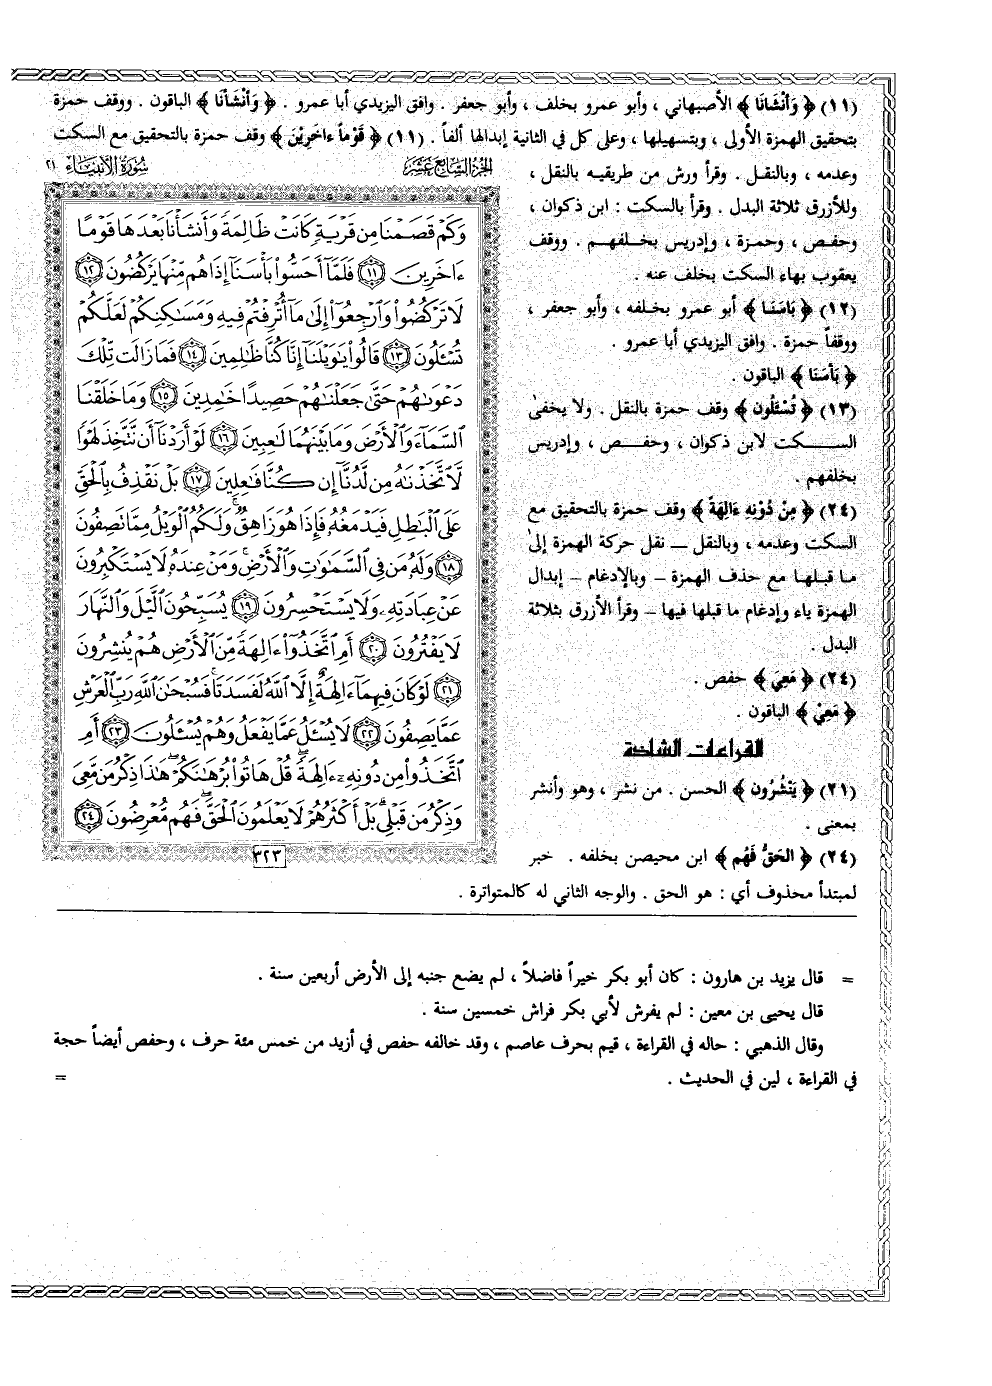 (١١) ﴿ وَأَنْشَانَا ﴾ الأصبهاني ، وأبو عمرو بخلف ، وأبو جعفر . وافق اليزيدي أبا عمرو . ﴿ وَأَنْشَأْنَا ﴾ الباقون . ووقف حمزة
بتحقيق الهمزة الأولى ، وبتسهيلها ، وعلى كل في الثانية إبدالها ألفاً . (١١) ﴿ قَوْماً ءاخَرِيْنَ ﴾ وقف حمزة بالتحقيق مع السكت
وعدمه ، وبالنقل . وقرأ ورش من طريقيه بالنقل ،
وللأزرق ثلاثة البدل . وقرأ بالسكت : ابن ذكوان ،
وحفص ، وحمزة ، وإدريس بخلفهم . ووقف
يعقوب بهاء السكت بخلف عنه .
(١٢) ﴿ بَاسَنَا ﴾ أبو عمرو بخلفه ، وأبو جعفر ،
ووقفاً حمزة . وافق اليزيدي أبا عمرو .
﴿ بَأْسَنَا ﴾ الباقون .
(١٣) ﴿ تُسْئَلُون ﴾ وقف حمزة بالنقل . ولا يخفى
السكت لابن ذكوان ، وحفص ، وإدريس
بخلفهم .
(٢٤) ﴿ مِنْ دُوْنِهِ ءَالِهَةً ﴾ وقف حمزة بالتحقيق مع
السكت وعدمه ، وبالنقل – نقل حركة الهمزة إلى
ما قبلها مع حذف الهمزة – وبالإدغام – إبدال
الهمزة ياء وإدغام ما قبلها فيها – وقرأ الأزرق بثلاثة
البدل .
(٢٤) ﴿ مَعِيَ ﴾ حفص .
﴿ مَعِيْ ﴾ الباقون .
القراءات الشاذة
(٢١) ﴿ يَنْشُرُون ﴾ الحسن . من نشر ، وهو وأنشر
بمعنى .
(٢٤) ﴿ الحَقُّ فَهُم ﴾ ابن محيصن بخلفه . خبر
لمبتدأ محذوف أي : هو الحق . والوجه الثاني له كالمتواترة .
الجزء السابع عشر
سورة الأنبياء ٢١
وَكَمْ قَصَمْنَا مِن قَرْيَةٍ كَانَتْ ظَالِمَةً وَأَنشَأْنَا بَعْدَهَا قَوْمًا
ءَاخَرِينَ ١١ فَلَمَّآ أَحَسُّوا۟ بَأْسَنَآ إِذَا هُم مِّنْهَا يَرْكُضُونَ ١٢
لَا تَرْكُضُوا۟ وَٱرْجِعُوٓا۟ إِلَىٰ مَآ أُتْرِفْتُمْ فِيهِ وَمَسَٰكِنِكُمْ لَعَلَّكُمْ
تُسْـَٔلُونَ ١٣ قَالُوا۟ يَٰوَيْلَنَآ إِنَّا كُنَّا ظَٰلِمِينَ ١٤ فَمَا زَالَت تِّلْكَ
دَعْوَىٰهُمْ حَتَّىٰ جَعَلْنَٰهُمْ حَصِيدًا خَٰمِدِينَ ١٥ وَمَا خَلَقْنَا
ٱلسَّمَآءَ وَٱلْأَرْضَ وَمَا بَيْنَهُمَا لَٰعِبِينَ ١٦ لَوْ أَرَدْنَآ أَن نَّتَّخِذَ لَهْوًا
لَّٱتَّخَذْنَٰهُ مِن لَّدُنَّآ إِن كُنَّا فَٰعِلِينَ ١٧ بَلْ نَقْذِفُ بِٱلْحَقِّ
عَلَى ٱلْبَٰطِلِ فَيَدْمَغُهُۥ فَإِذَا هُوَ زَاهِقٌ ۚ وَلَكُمُ ٱلْوَيْلُ مِمَّا تَصِفُونَ
١٨ وَلَهُۥ مَن فِى ٱلسَّمَٰوَٰتِ وَٱلْأَرْضِ ۚ وَمَنْ عِندَهُۥ لَا يَسْتَكْبِرُونَ
عَنْ عِبَادَتِهِۦ وَلَا يَسْتَحْسِرُونَ ١٩ يُسَبِّحُونَ ٱلَّيْلَ وَٱلنَّهَارَ
لَا يَفْتُرُونَ ٢٠ أَمِ ٱتَّخَذُوٓا۟ ءَالِهَةً مِّنَ ٱلْأَرْضِ هُمْ يُنشِرُونَ
٢١ لَوْ كَانَ فِيهِمَآ ءَالِهَةٌ إِلَّا ٱللَّهُ لَفَسَدَتَا ۚ فَسُبْحَٰنَ ٱللَّهِ رَبِّ ٱلْعَرْشِ
عَمَّا يَصِفُونَ ٢٢ لَا يُسْـَٔلُ عَمَّا يَفْعَلُ وَهُمْ يُسْـَٔلُونَ ٢٣ أَمِ
ٱتَّخَذُوا۟ مِن دُونِهِۦٓ ءَالِهَةً ۖ قُلْ هَاتُوا۟ بُرْهَٰنَكُمْ ۖ هَٰذَا ذِكْرُ مَن مَّعِىَ
وَذِكْرُ مَن قَبْلِى ۗ بَلْ أَكْثَرُهُمْ لَا يَعْلَمُونَ ٱلْحَقَّ ۖ فَهُم مُّعْرِضُونَ ٢٤
٣٢٣
= قال يزيد بن هارون : كان أبو بكر خيراً فاضلاً ، لم يضع جنبه إلى الأرض أربعين سنة .
قال يحيى بن معين : لم يفرش لأبي بكر فراش خمسين سنة .
وقال الذهبي : حاله في القراءة ، قيم بحرف عاصم ، وقد خالفه حفص في أزيد من خمس مئة حرف ، وحفص أيضاً حجة
في القراءة ، لين في الحديث . =